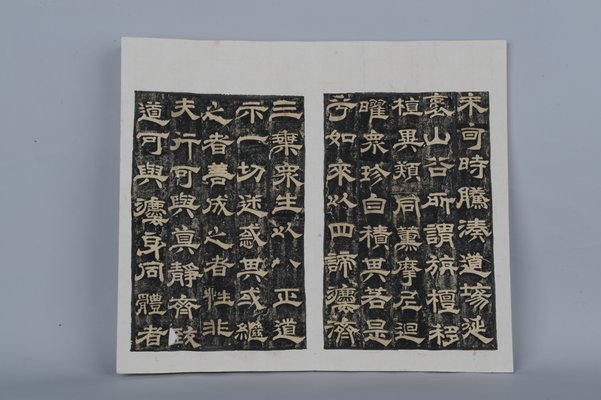 未可時騰湊道場延
袤山谷所謂旃檀移
植異類同薰摩尼迴
曜衆珍自積其若是
乎如來以四諦灋濟
三乗衆生以八正道
示一切迷惑其或繼
之者善成之者性非
夫行可與真靜齊
道可與灋身同體者